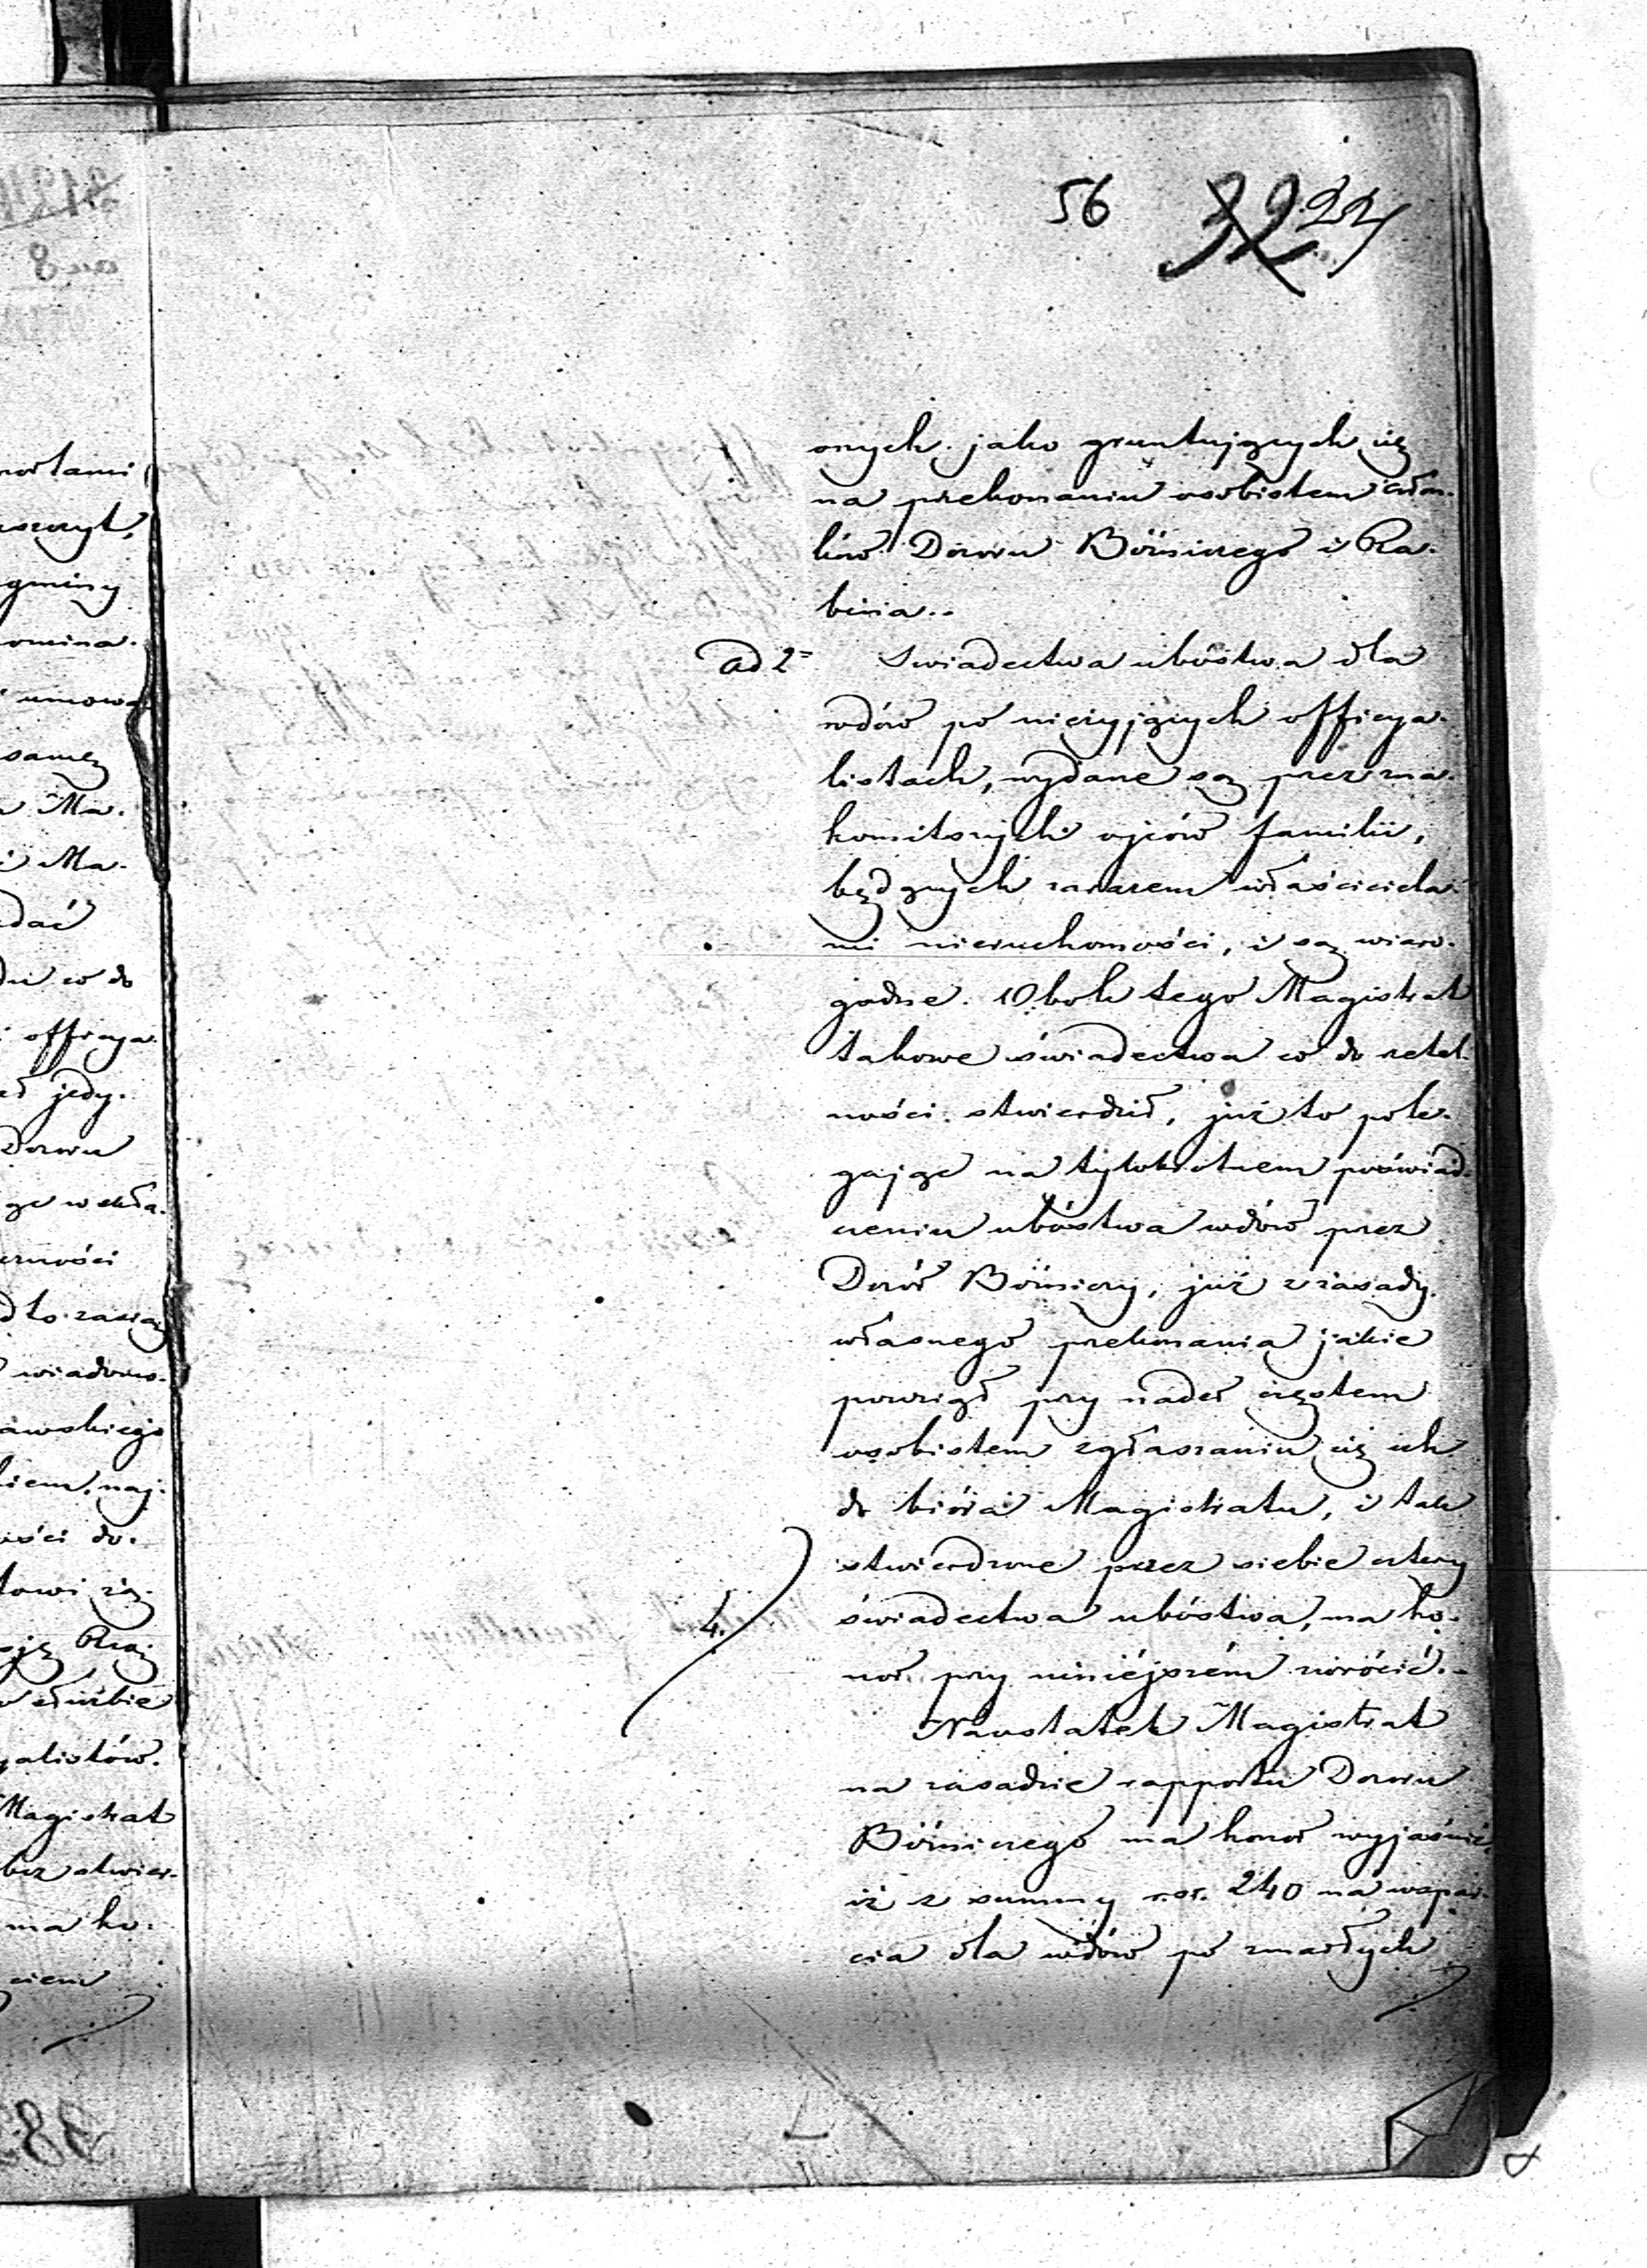 56 32 227
onych jako gruntujących się
na przekonaniu osobistem człon-
ków Dozoru Bóżniczego i Ra-
bina.
ad 2° Swiadectwa ubóstwa dla
wdów po nieżyjących officya-
listach, wydane są przez zna-
komitszych ojców familii,
będących zarazem właściciela-
mi nieruchomości, i są wiaro-
godne. Obok tego Magistrat
takowe świadectwa co do rzetel-
ności stwierdził, już to pole-
gając na tylokrotnem poświad-
czeniu ubóstwa wdów przez
Dozór Bóżniczy, już z zasady
własnego przekonania jakie
powziął przy nader częstem
osobistem zgłaszaniu się ich
do bióra Magistratu, i tak
stwierdzone przez siebie cztery
4. świadectwa ubóstwa, ma ho-
nor przy niniéjszém zwrócić.-
Naostatek Magistrat
na zasadzie rapportu Dozoru
Bóżniczego ma honor wyjaśnić,
iż z summy r.sr. 240 na wspar-
cia dla wdów po zmarłych
nortami
gminy
omina-
umowa
samej
Ma-
i Ma-
dać
du co do
officya-
jedy-
Dozoru
ności
wiadomo-
awskiego
kiem, naj-
ości do-
służbie
yalistów.
Magistrat
bez stwier-
ma ho-